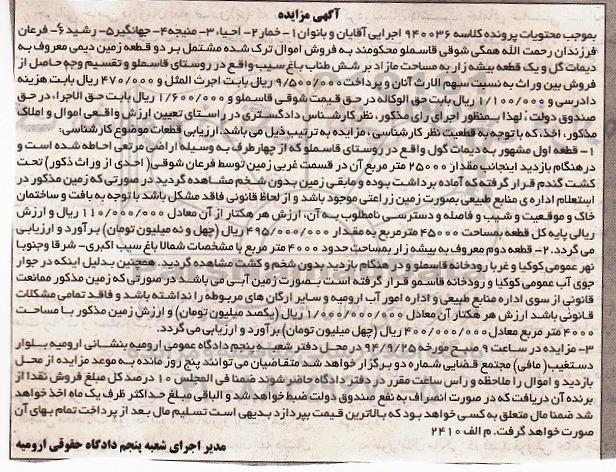 آگهی مزایده
بموجب محتویات پرونده کلاسه ۹۴۰۰۳۶ اجرایی آقایان و بانوان ۱- خمار ۲- احیاء ۳- منیجه ۴- جهانگیر ۵- رشید ۶- فرعان
فرزندان رحمت الله همگی شوقی قاسملو محکومند به فروش اموال ترک شده مشتمل بر دو قطعه زمین دیمی معروف به
دیمات گل و یک قطعه بیشه زار به مساحت مازاد بر شش طناب باغ سیب واقع در روستای قاسملو و تقسیم وجه حاصل از
فروش بین وراث به نسبت سهم الارث آنان و پرداخت ۹/۵۰۰/۰۰۰ ریال بابت اجرت المثل و ۴۷۰/۰۰۰ ریال بابت هزینه
دادرسی و ۱/۱۰۰/۰۰۰ ریال بابت حق الوکاله در حق قیمت شوقی قاسملو و ۱/۶۰۰/۰۰۰ ریال بابت حق الاجراء در حق
صندوق دولت؛ لهذا بـمنظور اجرای رأی مذکور، نظر کارشناس دادگستری در راستای تعیین ارزش واقعی اموال و املاک
مذکور، اخذ، که با توجه به قطعیت نظر کارشناسی، مزایده به ترتیب ذیل می باشد. ارزیابی قطعات موضوع کارشناسی:
۱- قطعه اول مشهور به دیمات کول واقع در روستای قاسملو که از چهار طرف به وسیله اراضی مرتعی احاطه شده است و
در هنگام بازدید اینجانب مقدار ۲۵۰۰۰ متر مربع آن در قسمت غربی زمین توسط فرعان شوقی( احدی از وراث ذکور) تحت
کشت گندم قرار گرفته که آماده برداشت بوده و مابقی زمین بدون شخم مشاهده گردید در صورتی که زمین مذکور در
استعلام اداره ی منابع طبیعی بصورت زمین زراعتی موجود باشد و از لحاظ قانونی فاقد مشکل باشد با توجه به بافت و ساختمان
خاک و موقعیت و شیب و فاصله و دسترسی نامطلوب به آن، ارزش هر هکتار از آن معادل ۱۱۰/۰۰۰/۰۰۰ ریال و ارزش
ریالی پایه کل قطعه بمساحت ۴۵۰۰۰ مترمربع به مقدار ۴۹۵/۰۰۰/۰۰۰ ریال (چهل و نه میلیون تومان) برآورد و ارزیابی
می گردد. ۲- قطعه دوم معروف به بیشه زار بمساحت حدود ۴۰۰۰ متر مربع با مشخصات شمالا باغ سیب اکبری- شرقا وجنوبا
نهر عمومی کوکیا و غربا رودخانه قاسملو و در هنگام بازدید بدون شخم و کشت مشاهده گردید. همچنین بدلیل اینکه در جوار
جوی آب عمومی کوکیا و رودخانه قاسملو قرار گرفته است بـصورت زمین آبـی می باشـد در صورتی که زمین مذکور ممانعت
قانونی از سوی اداره منابع طبیعی و اداره امور آب ارومیه و سایر ارگان های مربوطه را نداشته باشد و فاقد تمامی مشکلات
قانونی باشد ارزش هر هکتار آن معادل ۱/۰۰۰/۰۰۰/۰۰۰ ریال (یکصد میلیون تومان) و ارزش زمین مذکور با مساحت
۴۰۰۰ متر مربع معادل ۴۰۰/۰۰۰/۰۰۰ ریال (چهل میلیون تومان) برآورد و ارزیابی می گردد.
۳- مزایده در ساعت ۹ صبح مورخه ۹۴/۹/۲۵ در محل دفتر شعبه پنجم دادگاه عمومی ارومیه بنشانی ارومیه بلوار
دستغیب (مافی) مجتمع قضایی شماره دو برگزار خواهد شد متقاضیان می توانند پنج روز مانده به موعد مزایده از محل
بازدید و اموال را ملاحظه و راس ساعت مقرر در دفتر دادگاه حاضر شوند ضمنا فی المجلس ۱۰ درصد کل مبلغ فروش نقدا از
برنده آن دریافت که در صورت انصراف به نفع صندوق دولت ضبط خواهد شد و الباقی مبلغ حداکثر ظرف یک ماه اخذ خواهد
شد ضمنا مال متعلق به کسی خواهد بود که بالاترین قیمت بپردازد بدیهی است تسلیم مال بعد از پرداخت تمام بهای آن
صورت خواهد گرفت. م الف ۲۴۱۰
مدیر اجرای شعبه پنجم دادگاه حقوقی ارومیه